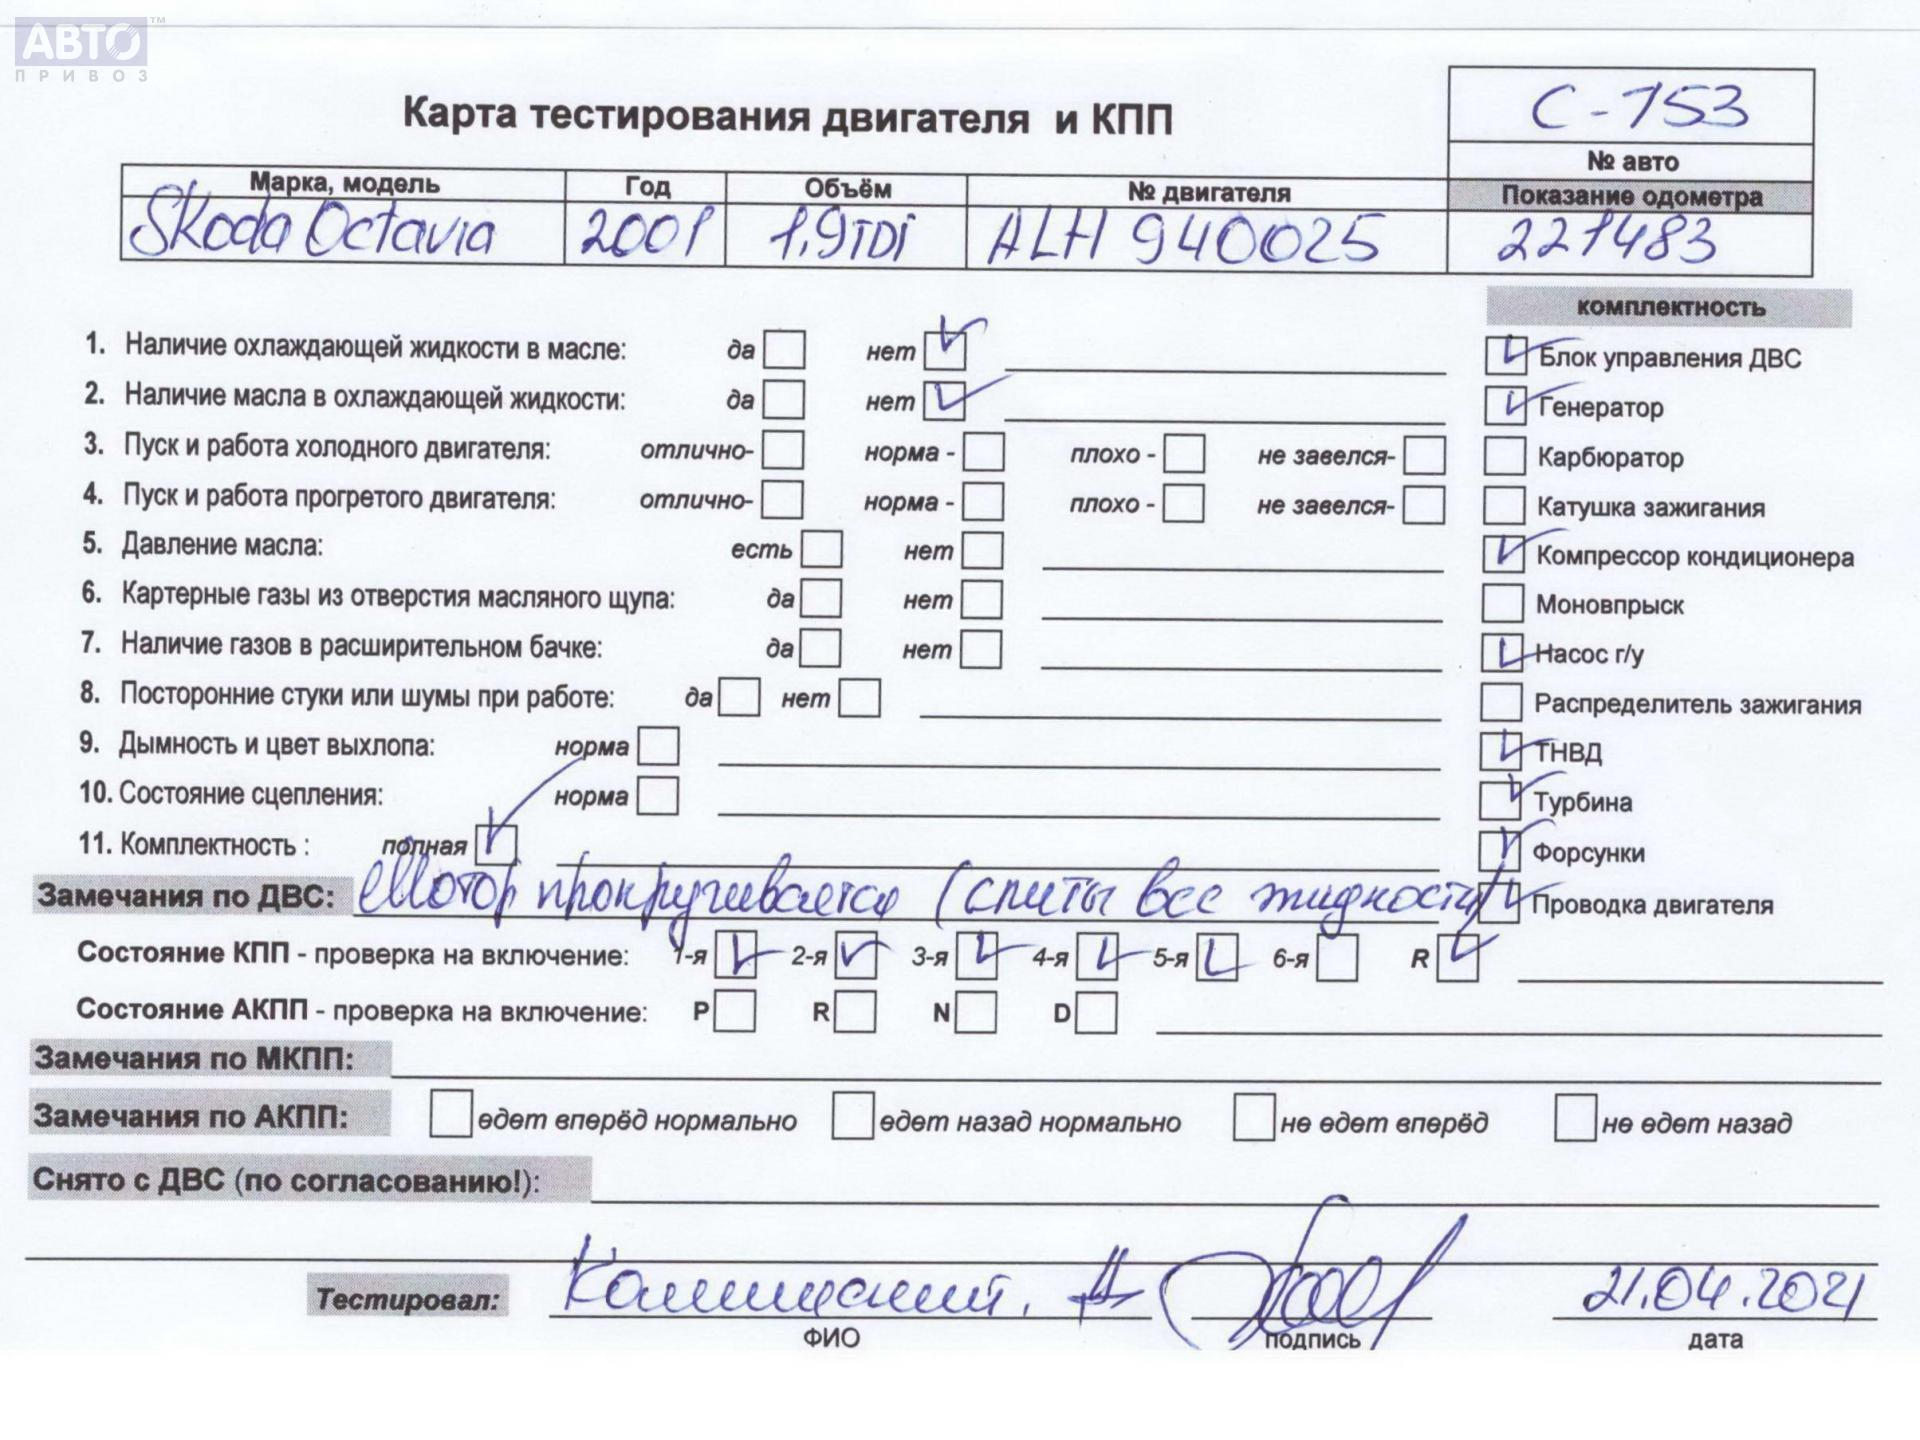 АВТО™
ПРИВОЗ
Карта тестирования двигателя и КПП
С-753
№ авто
Марка, модель Год Объём № двигателя Показание одометра
Skoda Octavia 2001 1,9TDi ALH 940025 221483
комплектность
1. Наличие охлаждающей жидкости в масле: да нет Блок управления ДВС
2. Наличие масла в охлаждающей жидкости: да нет Генератор
3. Пуск и работа холодного двигателя: отлично- норма - плохо - не завелся- Карбюратор
4. Пуск и работа прогретого двигателя: отлично- норма - плохо - не завелся- Катушка зажигания
5. Давление масла: есть нет Компрессор кондиционера
6. Картерные газы из отверстия масляного щупа: да нет Моновпрыск
7. Наличие газов в расширительном бачке: да нет Насос г/у
8. Посторонние стуки или шумы при работе: да нет Распределитель зажигания
9. Дымность и цвет выхлопа: норма ТНВД
10. Состояние сцепления: норма Турбина
11. Комплектность : полная Форсунки
Замечания по ДВС: Мотор прокручивается (слиты все жидкости) Проводка двигателя
Состояние КПП - проверка на включение: 1-я 2-я 3-я 4-я 5-я 6-я R
Состояние АКПП - проверка на включение: P R N D
Замечания по МКПП:
Замечания по АКПП: едет вперёд нормально едет назад нормально не едет вперёд не едет назад
Снято с ДВС (по согласованию!):
Тестировал: 21.04.2021
ФИО подпись дата